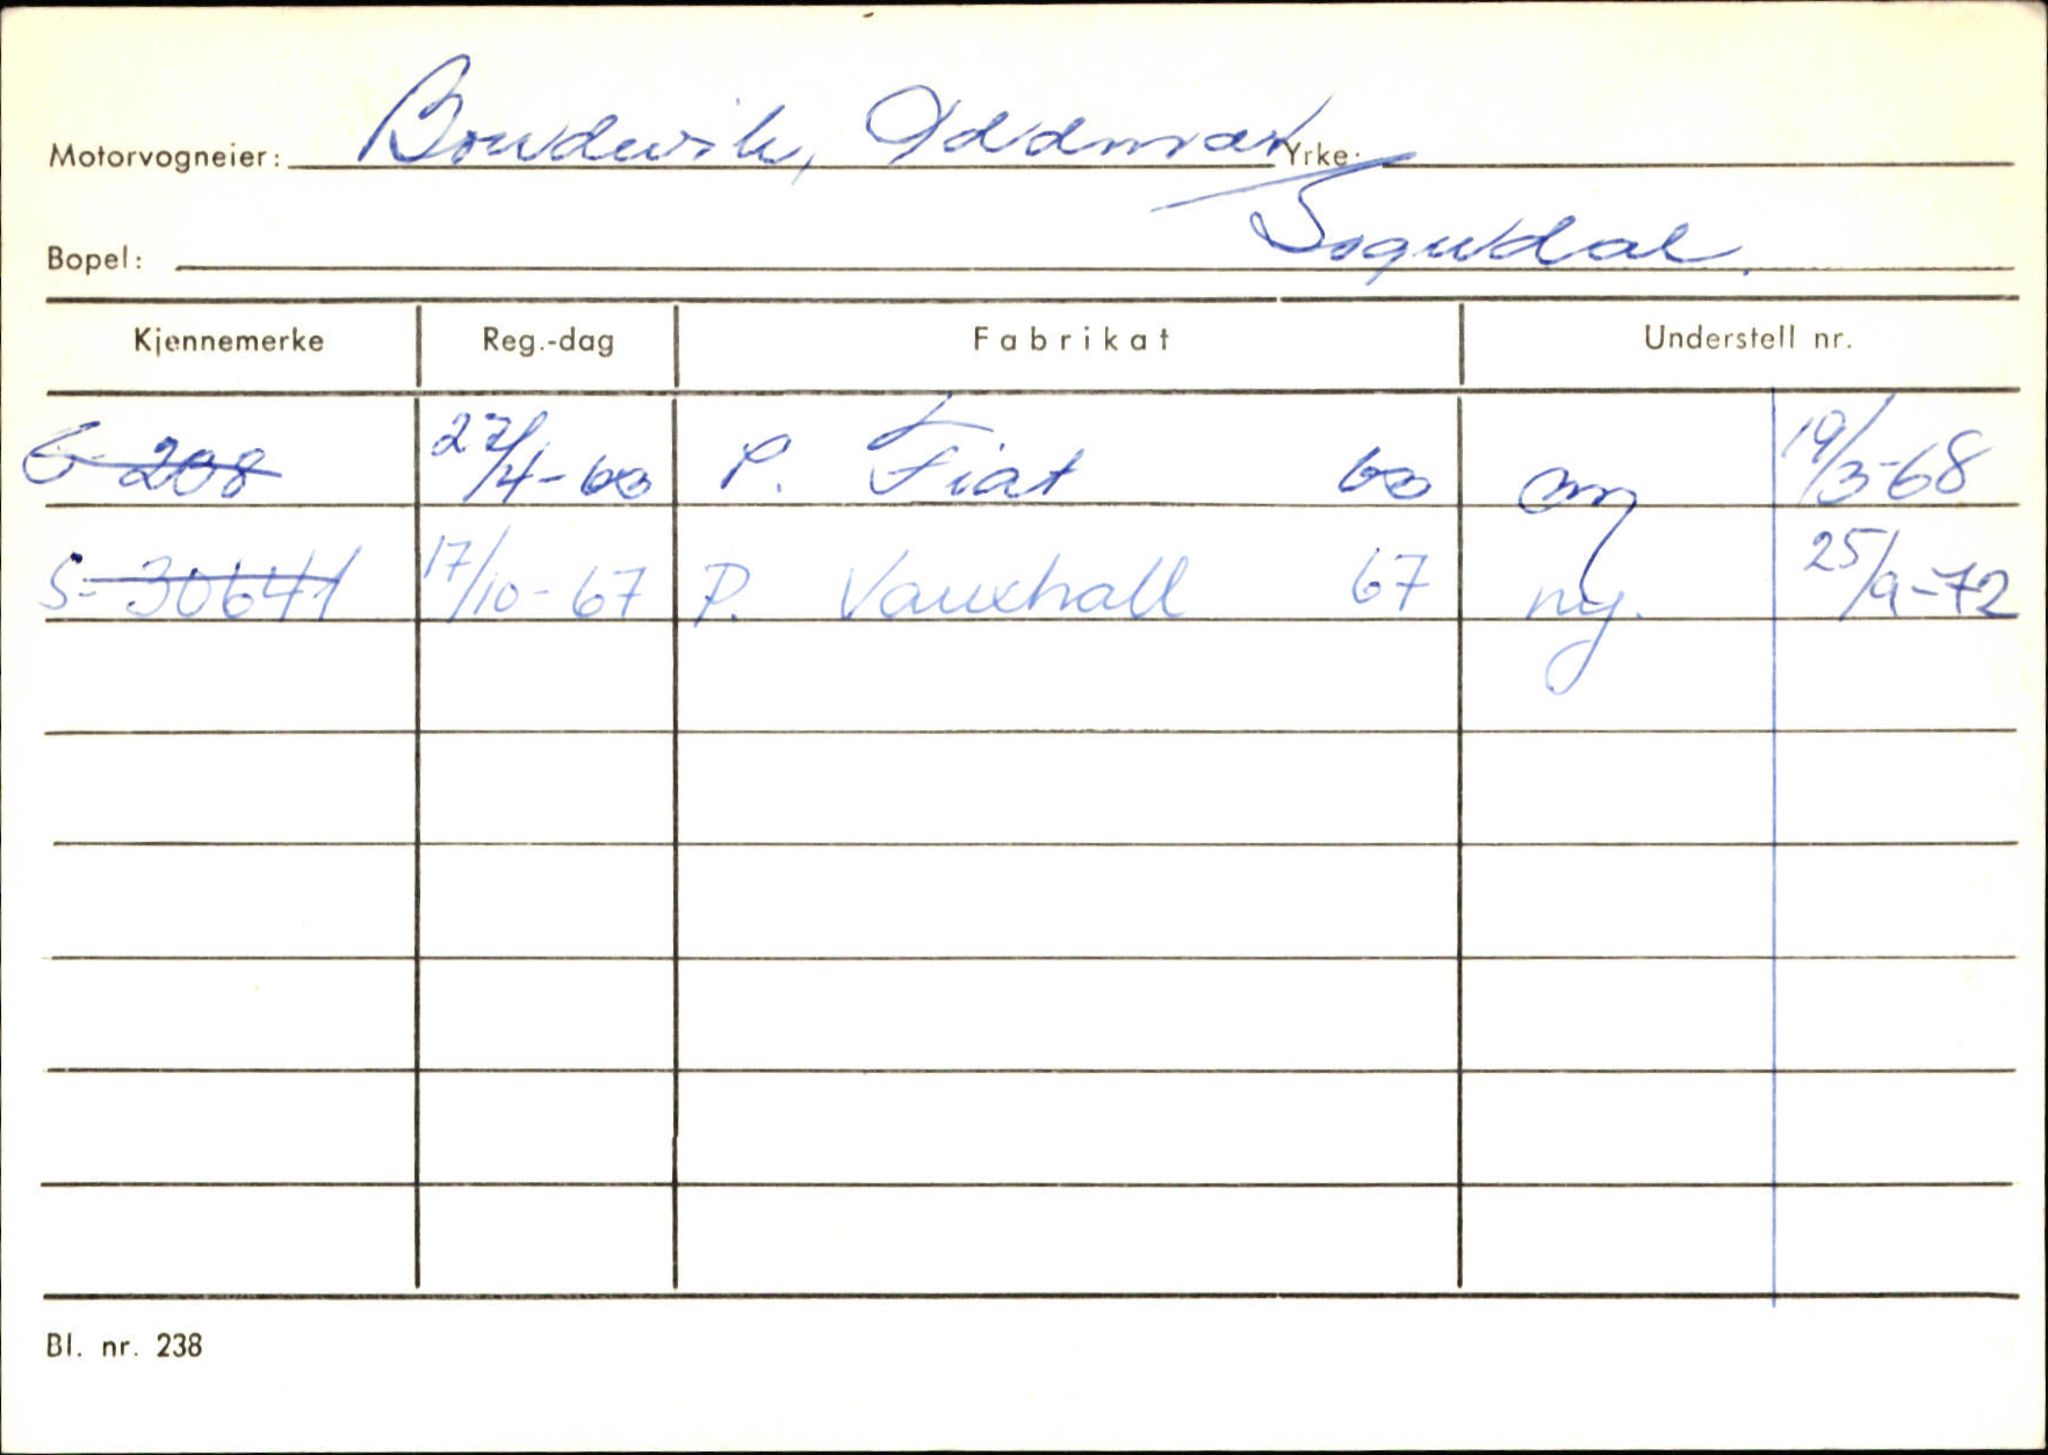 Motorvogneier: Boudewik, Oddmar Yrke:
Bopel: Sogndal.
Kjennemerke Reg.-dag Fabrikat Understell nr.
208 27/4-60 P. Fiat 60 19/3-68
S-30641 17/10-67 P. Vauxhall 67 ny. 25/9-72
Bl. nr. 238